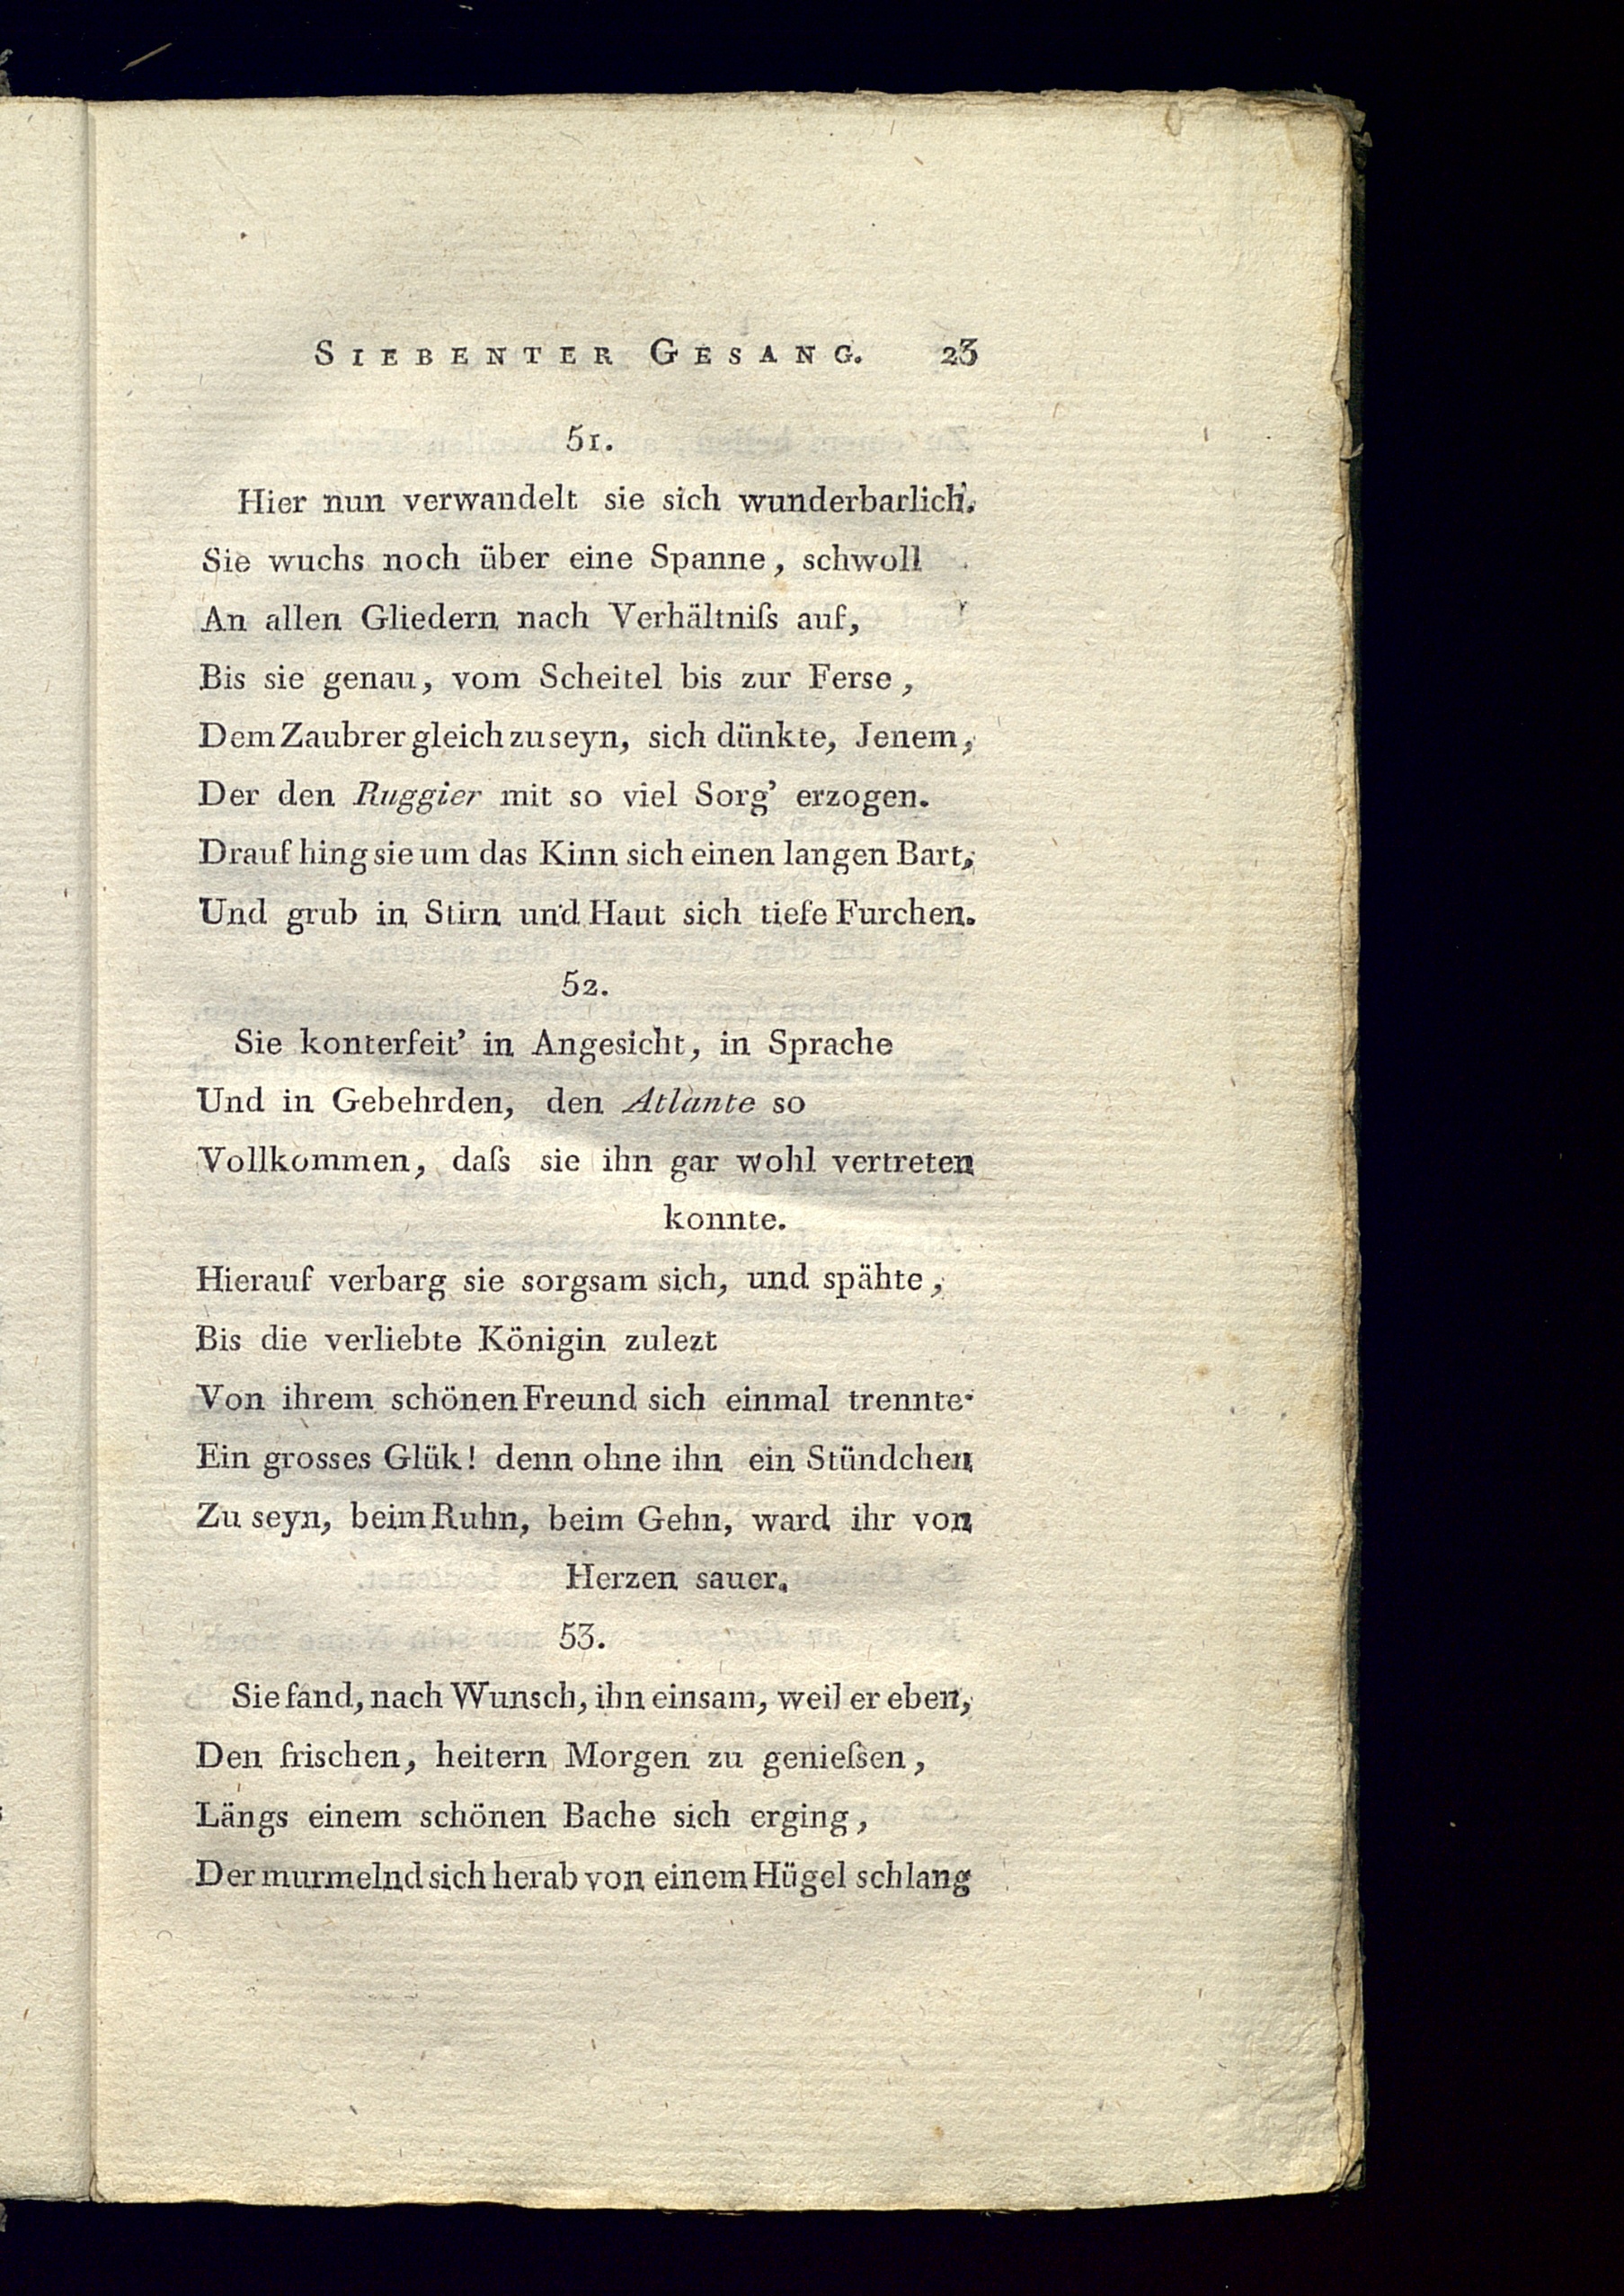 SIEBENTER GESANG. 23
51.
Hier nun verwandelt sie sich wunderbarlich.
Sie wuchs noch über eine Spanne, schwoll
An allen Gliedern nach Verhältniſs auf,
Bis sie genau, vom Scheitel bis zur Ferse,
Dem Zaubrer gleich zu seyn, sich dünkte, Jenem,
Der den Ruggier mit so viel Sorg' erzogen.
Drauf hing sie um das Kinn sich einen langen Bart,
Und grub in Stirn und Haut sich tiefe Furchen.
52.
Sie konterfeit' in Angesicht, in Sprache
Und in Gebehrden, den Atlante so
Vollkommen, daſs sie ihn gar wohl vertreten
konnte.
Hierauf verbarg sie sorgsam sich, und spähte,
Bis die verliebte Königin zulezt
Von ihrem schönen Freund sich einmal trennte.
Ein grosses Glük! denn ohne ihn ein Stündchen
Zu seyn, beim Ruhn, beim Gehn, ward ihr von
Herzen sauer.
53.
Sie fand, nach Wunsch, ihn einsam, weil er eben,
Den frischen, heitern Morgen zu genieſsen,
Längs einem schönen Bache sich erging,
Der murmelnd sich herab von einem Hügel schlang